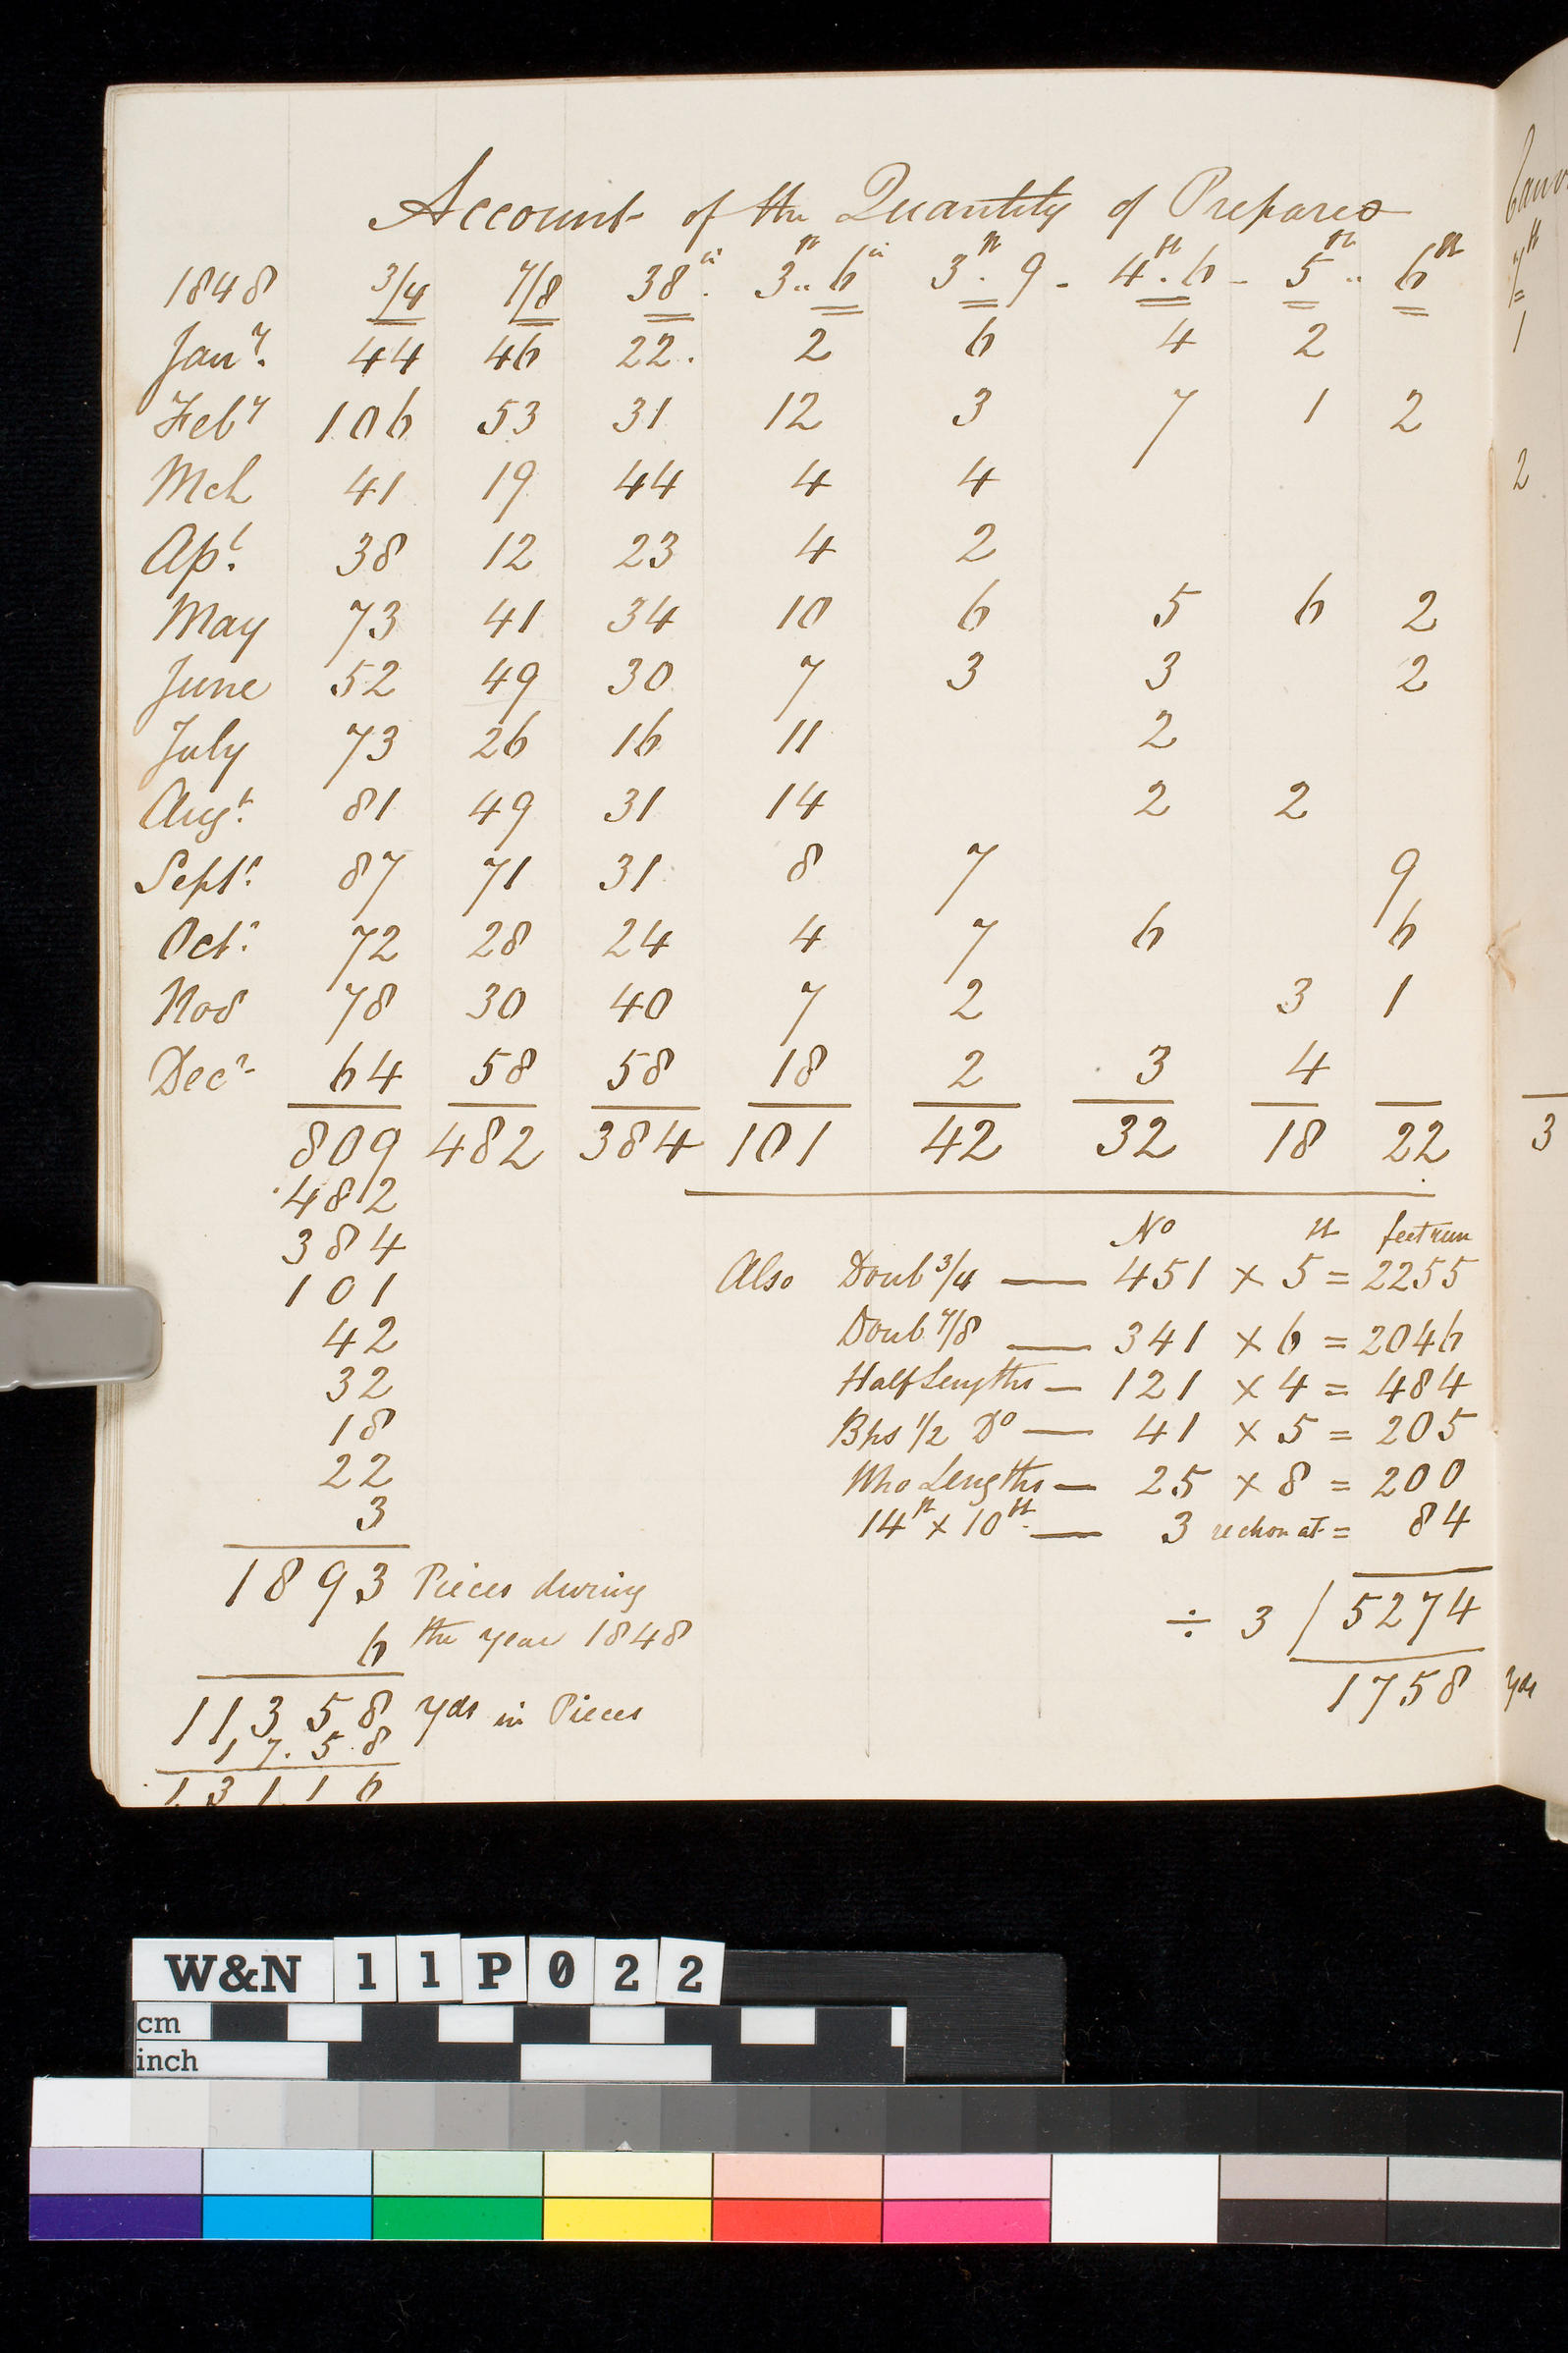 Account of the Quantity of Prepared
1848 3/4 7/8 38 in. 3ft.. 6in 3ft. 9 - 4ft. 6 - 5ft .. 6ft
Jany. 44 46 22. 2 6 4 2
Feby 106 53 31 12 3 7 1 2
Mch 41 19 44 4 4
Apl. 38 12 23 4 2
May 73 41 34 10 6 5 6 2
June 52 49 30 7 3 3 2
July 73 26 16 11 2
Augt. 81 49 31 14 2 2
Septr. 87 71 31 8 7 9
Octr. 72 28 24 4 7 6 6
Nov 78 30 40 7 2 3 1
Decr 64 58 58 18 2 3 4
809 482 384 101 42 32 18 22
482
384
101
42
32
18
22
3
1893 Pieces during
6 the year 1848
11358 yds in Pieces
17.58
13116
No ft feet run
Also Doub 3/4 — 451 × 5 = 2255
Doub 7/8 — 341 × 6 = 2046
Half Lengths — 121 × 4 = 484
Bps 1/2 Do — 41 × 5 = 205
Who Lengths — 25 × 8 = 200
14ft × 10ft — 3 reckon at = 84
÷ 3 / 5274
1758 yds
7ft
1
2
3
W&N 11P022
cm
inch